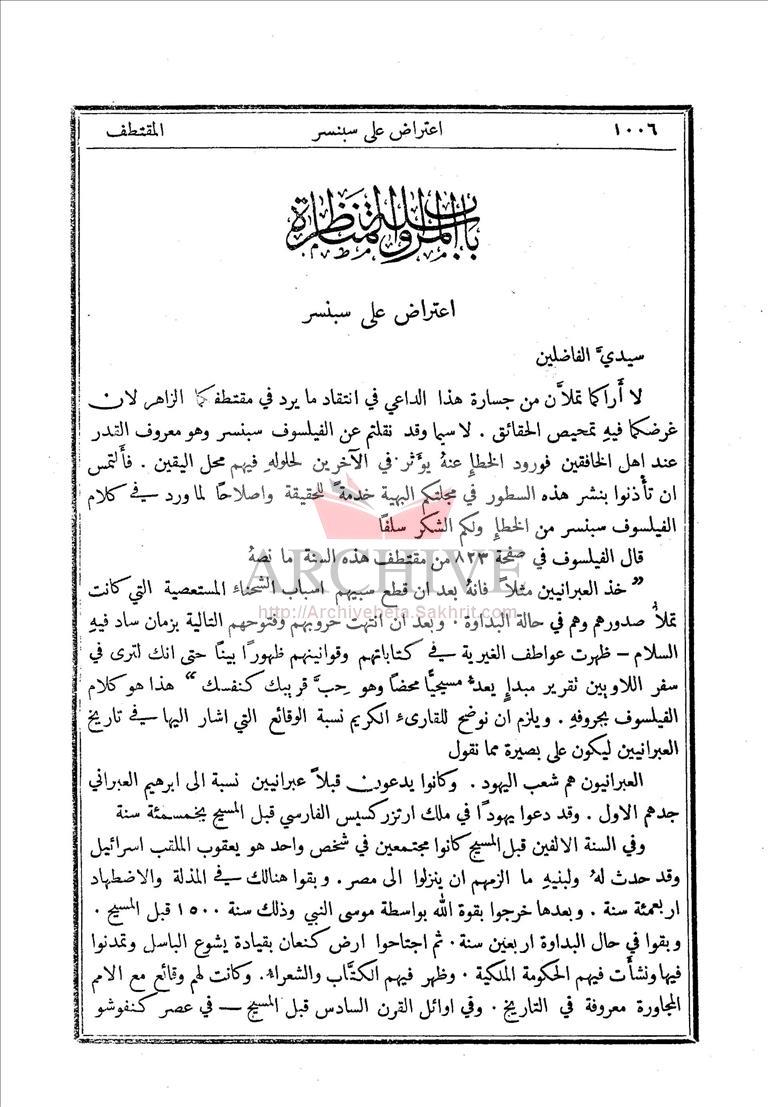 ١٠٠٦ اعتراض على سبنسر المقتطف
باب المراسلة والمناظرة
اعتراض على سبنسر
سيديَّ الفاضلين
لا أَراكما تملَّان من جسارة هذا الداعي في انتقاد ما يرد في مقتطفكما الزاهر لان
غرضكما فيهِ تمحيص الحقائق . لا سيما وقد نقلتم عن الفيلسوف سبنسر وهو معروف القدر
عند اهل الخافقين فورود الخطإِ عنهُ يوَّثر في الآخرين لحلولهِ فيهم محل اليقين . فأَلتمس
ان تأْذنوا بنشر هذه السطور في مجلتكم البهية خدمةً للحقيقة واصلاحًا لما ورد في كلام
الفيلسوف سبنسر من الخطإِ ولكم الشكر سلفًا
قال الفيلسوف في صفحة ٨٢٣ من مقتطف هذه السنة ما نصهُ
” خذ العبرانيين مثلاً فانهُ بعد ان قطع سبيهم اسباب الشحناء المستعصية التي كانت
تملأُ صدورهم وهم في حالة البداوة . وبعد ان انتهت حروبهم وفتوحهم التالية بزمان ساد فيهِ
السلام – ظهرت عواطف الغيرية في كتاباتهم وقوانينهم ظهورًا بينًا حتى انك لترى في
سفر اللاويين تقرير مبدإٍ يعدُّ مسيحيًّا محضًا وهو حِبَّ قريبك كنفسك “ هذا هو كلام
الفيلسوف بحروفهِ . ويلزم ان نوضح للقارىء الكريم نسبة الوقائع التي اشار اليها في تاريخ
العبرانيين ليكون على بصيرة مما نقول
العبرانيون هم شعب اليهود . وكانوا يدعون قبلاً عبرانيين نسبة الى ابرهيم العبراني
جدهم الاول . وقد دعوا يهودًا في ملك ارتزركسيس الفارسي قبل المسيح بخمسمئة سنة
وفي السنة الالفين قبل المسيح كانوا مجتمعين في شخص واحد هو يعقوب الملقب اسرائيل
وقد حدث لهُ ولبنيهِ ما الزمهم ان ينزلوا الى مصر . وبقوا هنالك في المذلة والاضطهاد
اربعمئة سنة . وبعدها خرجوا بقوة الله بواسطة موسى النبي وذلك سنة ١٥٠٠ قبل المسيح .
وبقوا في حال البداوة اربعين سنة . ثم اجتاحوا ارض كنعان بقيادة يشوع الباسل وتمدنوا
فيها ونشأَت فيهم الحكومة الملكية . وظهر فيهم الكتَّاب والشعراء . وكانت لهم وقائع مع الامم
المجاورة معروفة في التاريخ . وفي اوائل القرن السادس قبل المسيح — في عصر كنفوشو
ARCHIVE
http://Archivebeta.Sakhrit.com